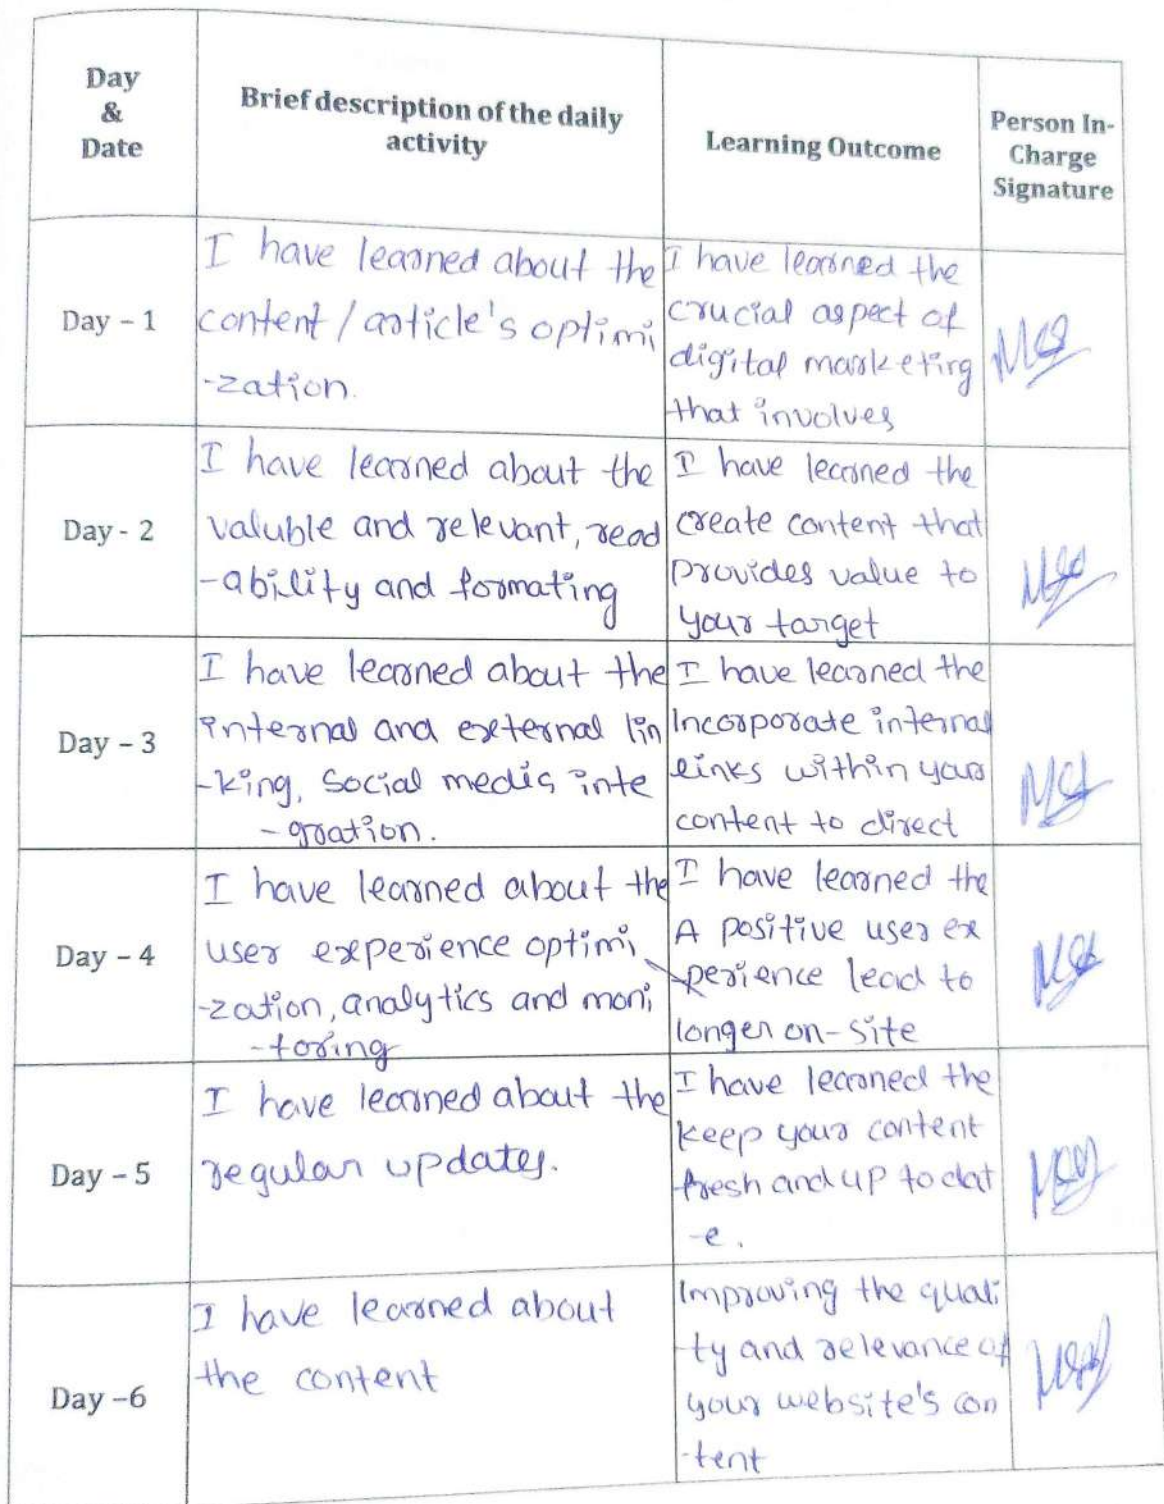 Day
&
Date
Brief description of the daily
activity
Learning Outcome
Person In-
Charge
Signature
Day - 1
I have learned about the
content / article's optimi
-zation.
I have learned the
crucial aspect of
digital marketing
that involves
Day - 2
I have learned about the
valuble and relevant, read
-ability and formating
I have learned the
create content that
provides value to
your target
Day - 3
I have learned about the
internal and external lin
-king, social medis inte
-gration.
I have learned the
Incorporate internal
links within your
content to direct
Day - 4
I have learned about the
user experience optimi
-zation, analytics and moni
-toring
I have learned the
A positive user ex
-perience lead to
longer on-site
Day - 5
I have learned about the
regular updates.
I have learned the
keep your content
fresh and up to dat
-e.
Day -6
I have learned about
the content
Improving the quali
ty and relevance of
your website's con
-tent